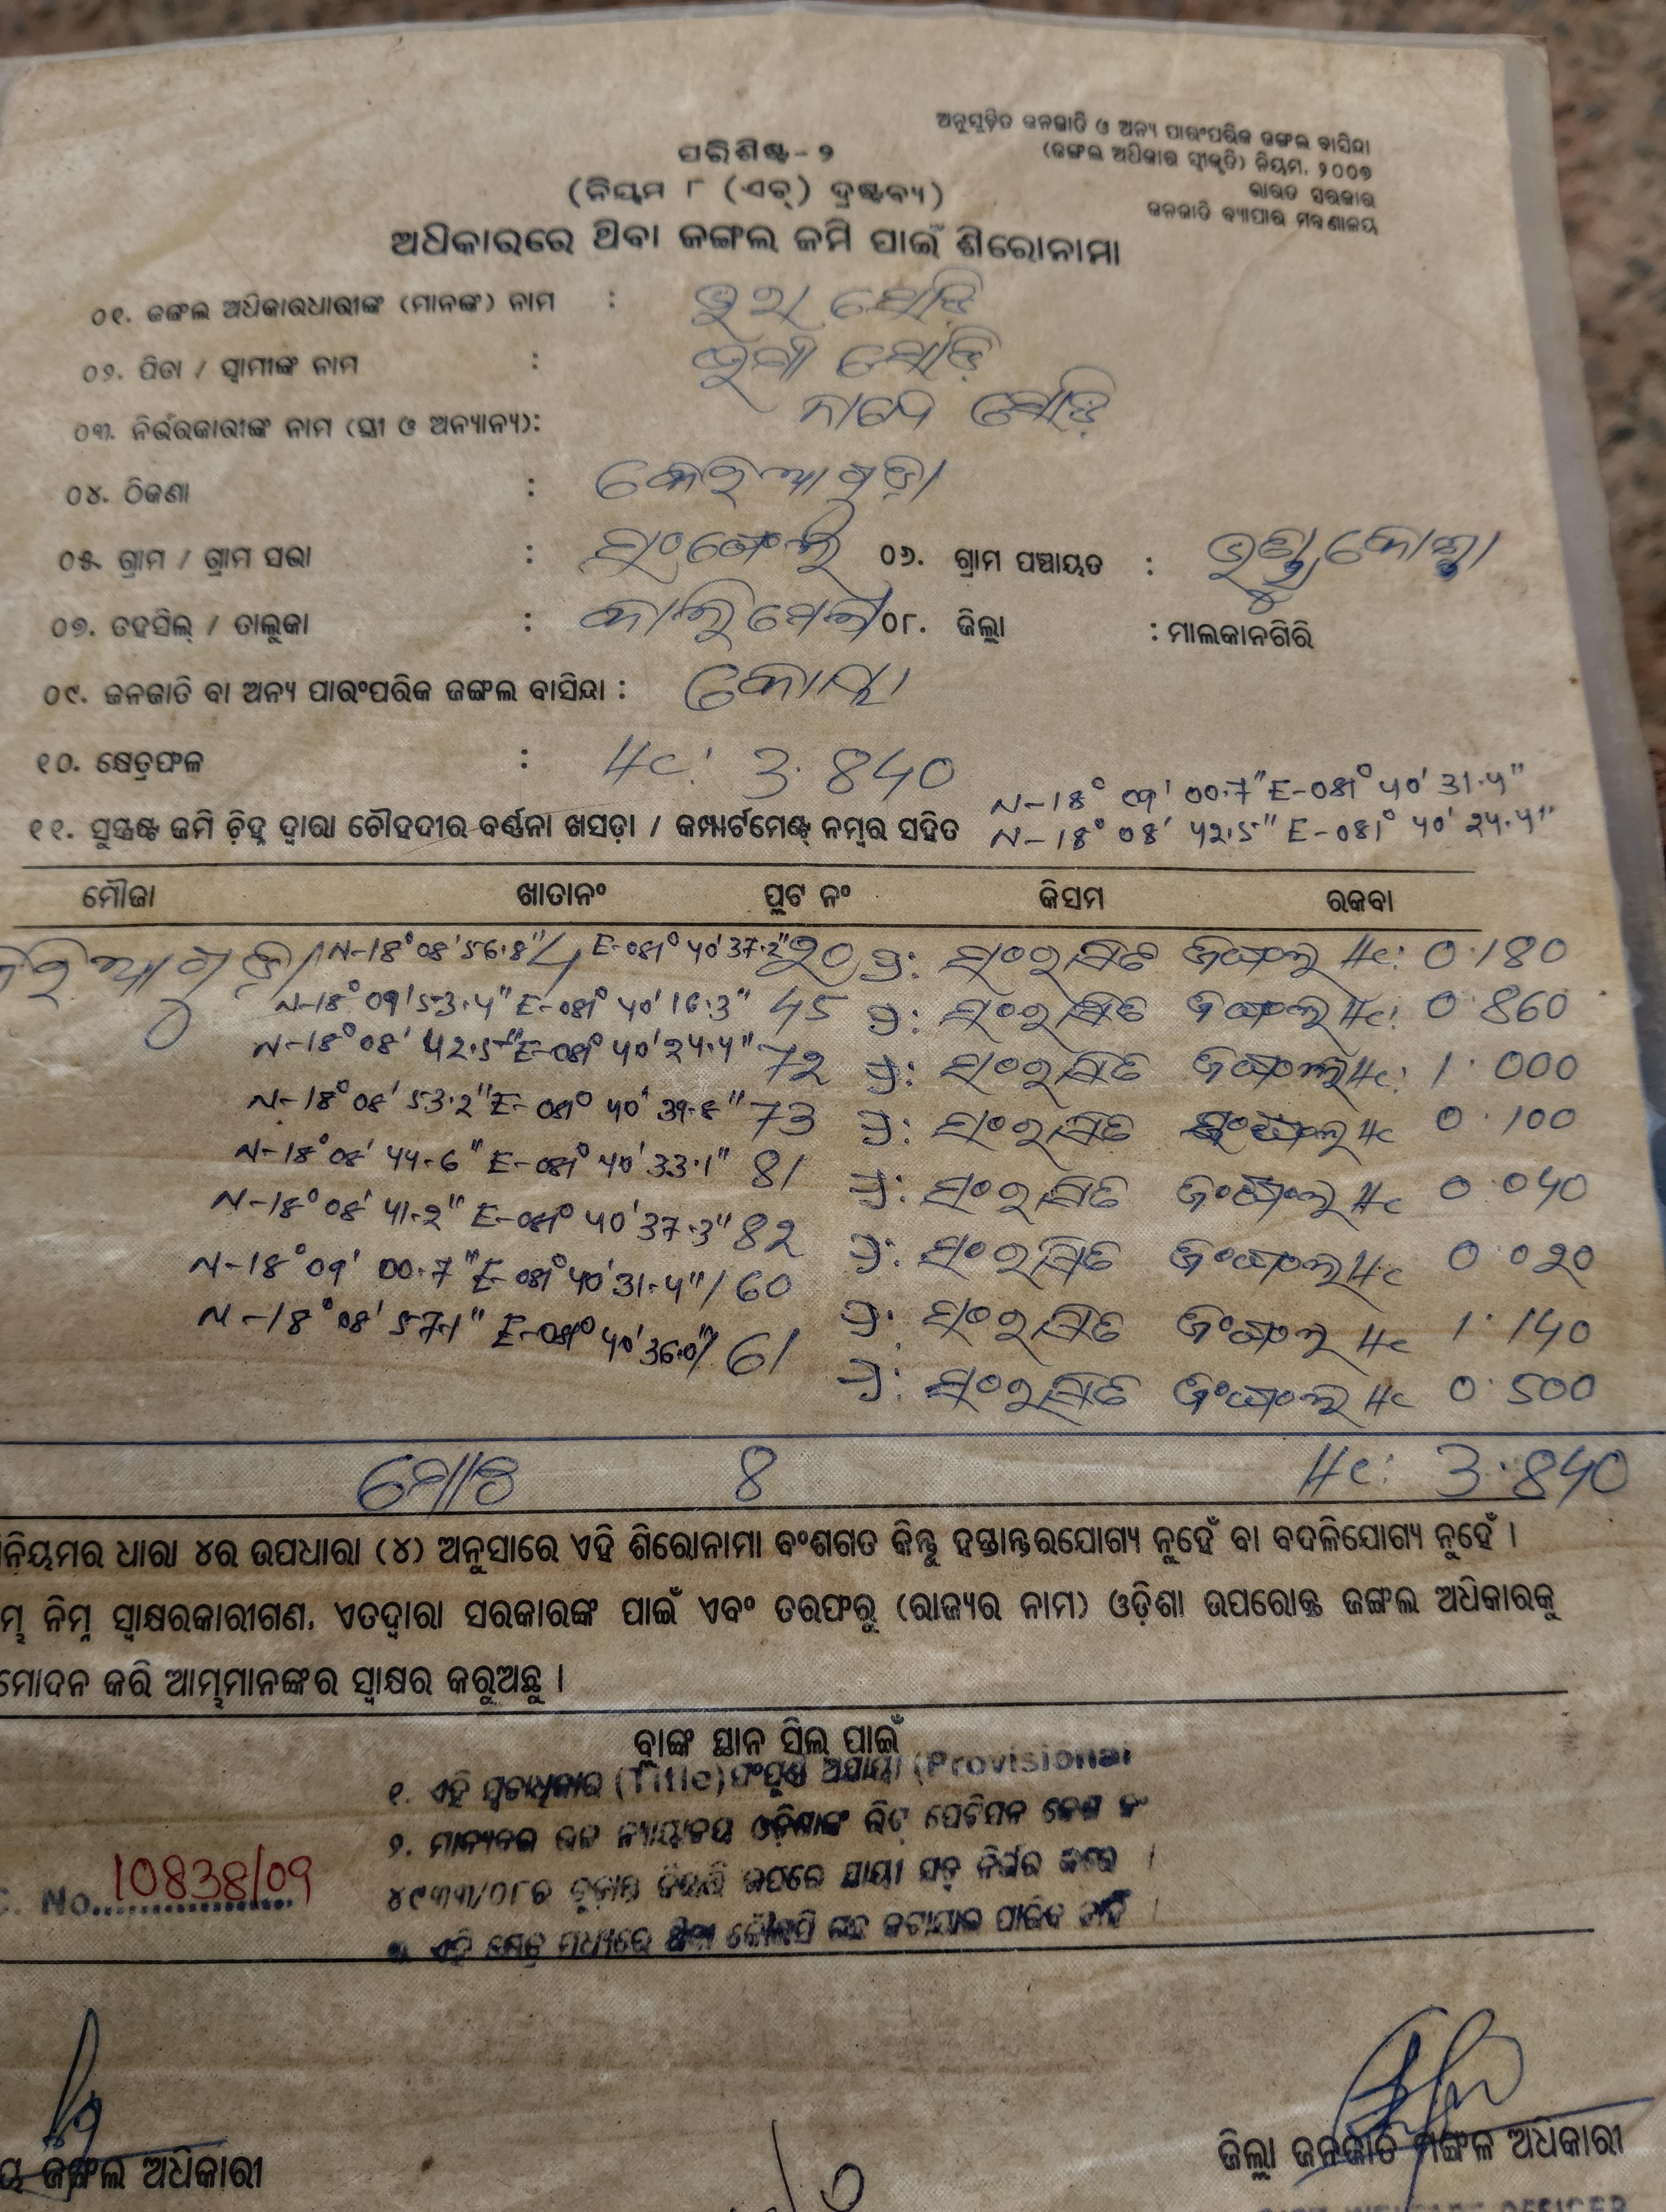 ଅନୁସୂଚିତ ଜନଜାତି ଓ ଅନ୍ୟ ପାରଂପରିକ ଜଙ୍ଗଲ ବାସିନ୍ଦା
(ଜଙ୍ଗଲ ଅଧିକାର ସ୍ୱୀକୃତି) ନିୟମ, ୨୦୦୭
ଭାରତ ସରକାର
ଜନଜାତି ବ୍ୟାପାର ମନ୍ତ୍ରଣାଳୟ
ପରିଶିଷ୍ଟ - ୨
(ନିୟମ ୮ (ଏଚ୍) ଦ୍ରଷ୍ଟବ୍ୟ)
ଅଧିକାରରେ ଥିବା ଜଙ୍ଗଲ ଜମି ପାଇଁ ଶିରୋନାମା
୦୧. ଜଙ୍ଗଲ ଅଧିକାରଧାରୀଙ୍କ (ମାନଙ୍କ) ନାମ :
୦୨. ପିତା / ସ୍ୱାମୀଙ୍କ ନାମ :
୦୩. ନିର୍ଭରକାରୀଙ୍କ ନାମ (ସ୍ତ୍ରୀ ଓ ଅନ୍ୟାନ୍ୟ):
୦୪. ଠିକଣା :
୦୫. ଗ୍ରାମ / ଗ୍ରାମ ସଭା : ୦୬. ଗ୍ରାମ ପଞ୍ଚାୟତ :
୦୭. ତହସିଲ୍ / ତାଲୁକା : କାଲିମେଳା ୦୮. ଜିଲ୍ଲା : ମାଲକାନଗିରି
୦୯. ଜନଜାତି ବା ଅନ୍ୟ ପାରଂପରିକ ଜଙ୍ଗଲ ବାସିନ୍ଦା : କୋୟା
୧୦. କ୍ଷେତ୍ରଫଳ : Ac: 3.840
N-18° 09' 00.7" E-081° 40' 31.4"
୧୧. ସୁସ୍ପଷ୍ଟ ଜମି ଚିହ୍ନ ଦ୍ୱାରା ଚୌହଦୀର ବର୍ଣ୍ଣନା ଖସଡ଼ା / କମ୍ପାର୍ଟମେଣ୍ଟ୍ ନମ୍ବର ସହିତ N-18° 08' 42.5" E-081° 40' 24.4"
ମୌଜା ଖାତାନଂ ପ୍ଲଟ ନଂ କିସମ ରକବା
N-18° 08' 56.8" E-081° 40' 37.2" 20 ପ୍ର: ସଂରକ୍ଷିତ ଜଙ୍ଗଲ Ac: 0.180
N-18° 09' 53.4" E-081° 40' 16.3" 45 ପ୍ର: ସଂରକ୍ଷିତ ଜଙ୍ଗଲ Ac: 0.860
N-18° 08' 42.5" E-081° 40' 24.4" 72 ପ୍ର: ସଂରକ୍ଷିତ ଜଙ୍ଗଲ Ac: 1.000
N-18° 08' 53.2" E-081° 40' 39.8" 73 ପ୍ର: ସଂରକ୍ଷିତ ଜଙ୍ଗଲ Ac 0.100
N-18° 08' 44.6" E-081° 40' 33.1" 81 ପ୍ର: ସଂରକ୍ଷିତ ଜଙ୍ଗଲ Ac 0.040
N-18° 08' 41.2" E-081° 40' 37.3" 82 ପ୍ର: ସଂରକ୍ଷିତ ଜଙ୍ଗଲ Ac 0.020
N-18° 09' 00.7" E-081° 40' 31.4" / 60 ପ୍ର: ସଂରକ୍ଷିତ ଜଙ୍ଗଲ Ac 1.140
N-18° 08' 57.1" E-081° 40' 36.0" / 61 ପ୍ର: ସଂରକ୍ଷିତ ଜଙ୍ଗଲ Ac 0.500
ମୋଟ 8 Ac: 3.840
ନିୟମର ଧାରା ୪ର ଉପଧାରା (୪) ଅନୁସାରେ ଏହି ଶିରୋନାମା ବଂଶଗତ କିନ୍ତୁ ହସ୍ତାନ୍ତରଯୋଗ୍ୟ ନୁହେଁ ବା ବଦଳିଯୋଗ୍ୟ ନୁହେଁ ।
ନିମ୍ନ ସ୍ୱାକ୍ଷରକାରୀଗଣ, ଏତଦ୍ୱାରା ସରକାରଙ୍କ ପାଇଁ ଏବଂ ତରଫରୁ (ରାଜ୍ୟର ନାମ) ଓଡ଼ିଶା ଉପରୋକ୍ତ ଜଙ୍ଗଲ ଅଧିକାରକୁ
ମୋଦନ କରି ଆମ୍ଭମାନଙ୍କର ସ୍ୱାକ୍ଷର କରୁଅଛୁ ।
ବ୍ଲାଙ୍କ ସ୍ଥାନ ସିଲ୍ ପାଇଁ
୧. ଏହି ସ୍ୱତ୍ୱାଧିକାର (Title) ସଂପୂର୍ଣ୍ଣ ଅସ୍ଥାୟୀ (Provisional
୨. ମାନ୍ୟବର ଉଚ୍ଚ ନ୍ୟାୟାଳୟ ଓଡ଼ିଶାଙ୍କ ରିଟ୍ ପେଟିସନ କେଶ ନଂ
୪୯୩୩/୦୮ର ଚୂଡ଼ାନ୍ତ ନିଷ୍ପତ୍ତି ଉପରେ ସ୍ଥାୟୀ ସତ୍ତ୍ୱ ନିର୍ଭର କରେ ।
ଏହି କ୍ଷେତ୍ର ମଧ୍ୟରେ ଥିବା କୌଣସି ଗଛ କଟାଯାଇ ପାରିବ ନାହିଁ ।
No. 10838/09
ଜଙ୍ଗଲ ଅଧିକାରୀ
ଜିଲ୍ଲା ଜନଜାତି ମଙ୍ଗଳ ଅଧିକାରୀ